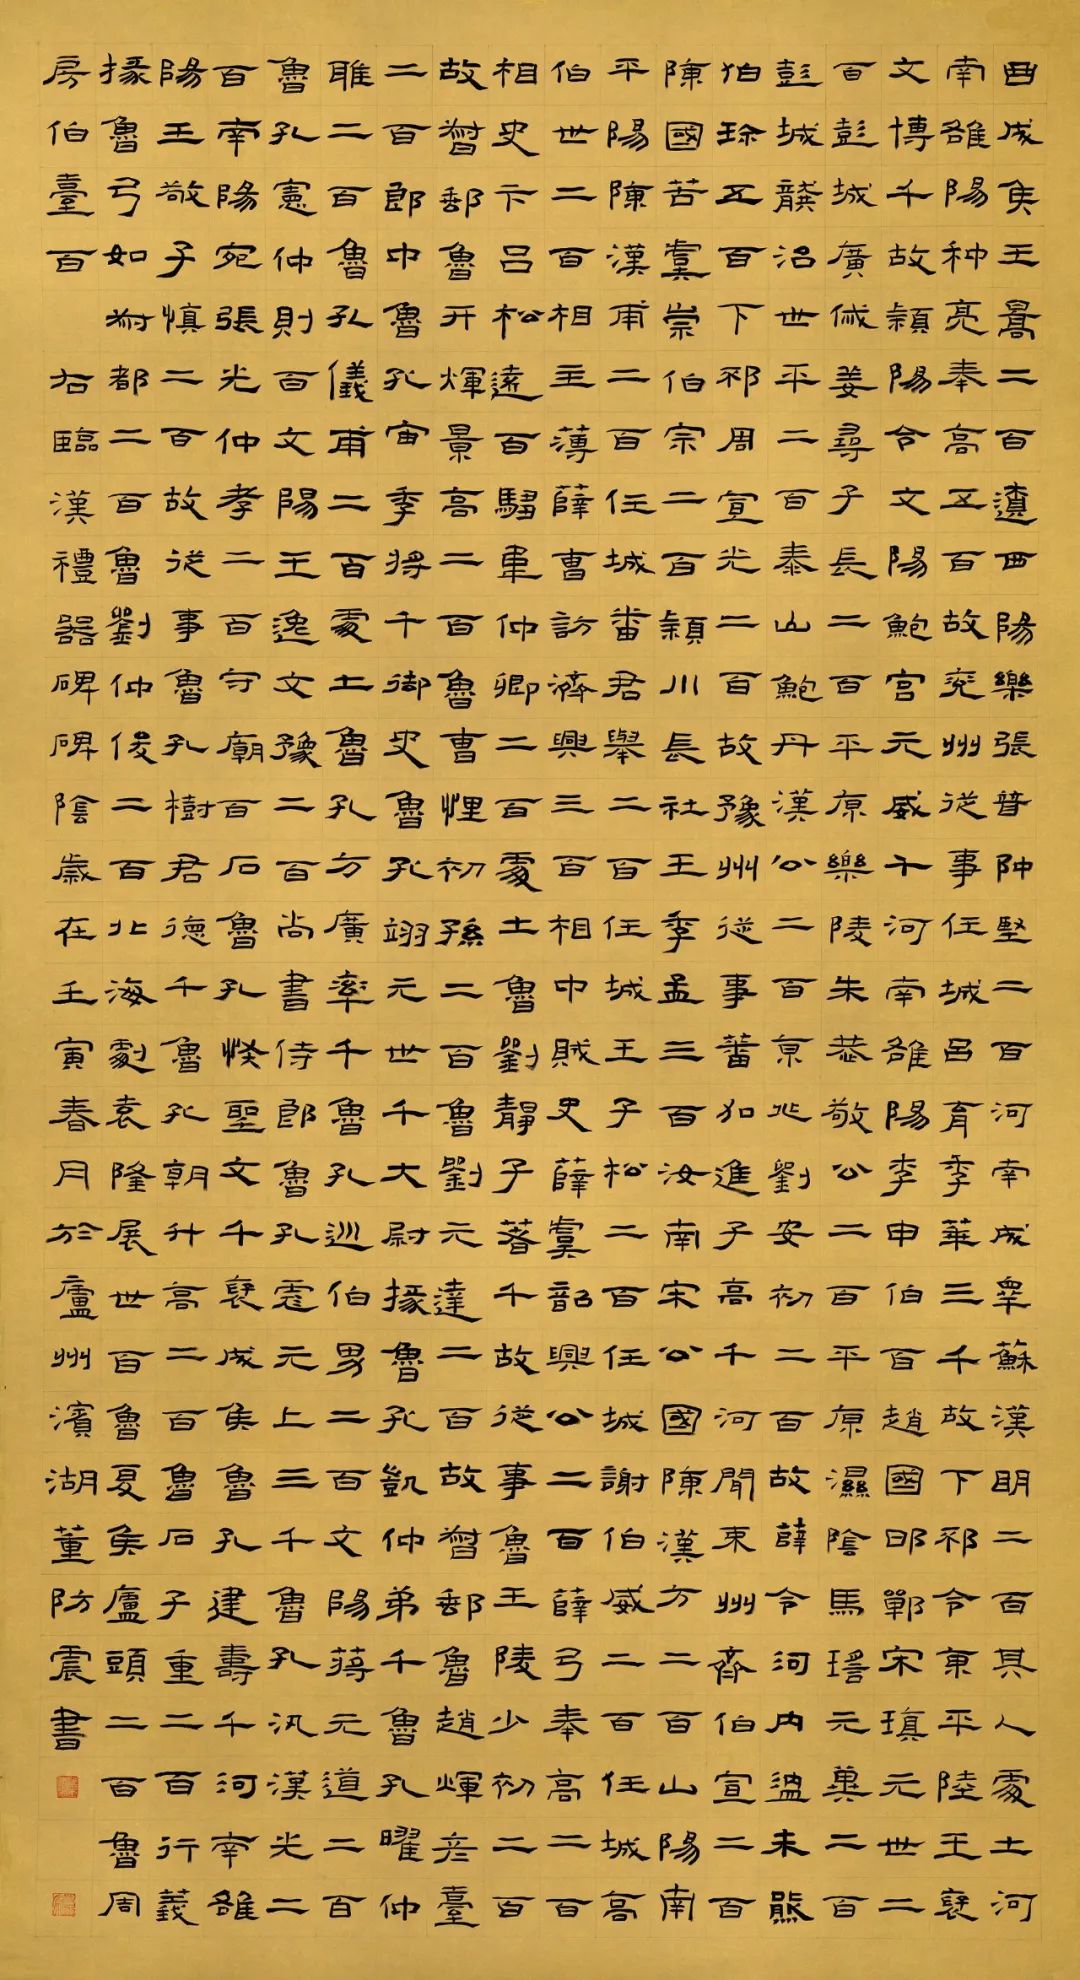 曲成侯王暠二百遼西陽樂張普仲堅二百河南成睪蘇漢明二百其人處土河
南雒陽种亮奉高五百故兖州從事任城呂育季華三千故下邳令東平陸王褒
文博千故穎陽令文陽鮑宮元威千河南雒陽李申伯百趙國邯鄲宋瑱元世二
百彭城廣俴姜尋子長二百平原樂陵朱恭敬公二百平原濕陰馬瑶元冀二百
彭城龔洽世平二百泰山鮑丹漢公二百京兆劉安初二百故薛令河內溫朱熊
伯珍五百下邳周宣光二百故豫州從事蕃加進子高千河閒東州齊伯宣二百
陳國苦虞崇伯宗二百穎川長社王季孟三百汝南宋公國陳漢方二百山陽南
平陽陳漢甫二百任城番君舉二百任城王子松二百任城謝伯威二百任城高
伯世二百相主薄薛曹訪濟興三百相中賊史薛虞韶興公二百薛弓奉高二百
相史卞呂松遠百騶韋仲卿二百處土魯劉靜子著千故從事魯王陵少初二百
故督郵魯开煇景高二百魯曹悝初孫二百魯劉元達二百故督郵魯趙煇彦臺
二百郎中魯孔宙季將千御史魯孔翊元世千大尉掾魯孔凱仲弟千魯孔曜仲
雎二百魯孔儀甫二百處土魯孔方廣率千魯孔巡伯男二百文陽蔣元道二百
魯孔憲仲則百文陽王逸文豫二百尚書侍郎魯孔霓元上三千魯孔汎漢光二
百南陽宛張光仲孝二百守廟百石魯孔恢聖文千褒成侯魯孔建壽千河南雒
陽王敬子慎二百故從事魯孔樹君德千魯孔朝升高二百魯石子重二百行義
掾魯弓如 都二百魯劉仲俊二百北海劇袁隆展世百魯夏侯廬頭二百魯周
房伯臺百 右臨漢禮器碑碑陰歲在壬寅春月於廬州濱湖董防震書